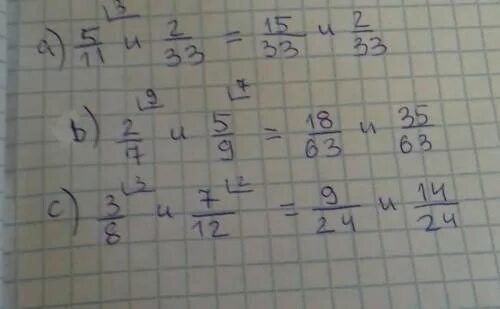 a) 5/11 ⌊3 и 2/33 = 15/33 и 2/33
b) 2/7 ⌊9 и 5/9 ⌊7 = 18/63 и 35/63
c) 3/8 ⌊3 и 7/12 ⌊2 = 9/24 и 14/24